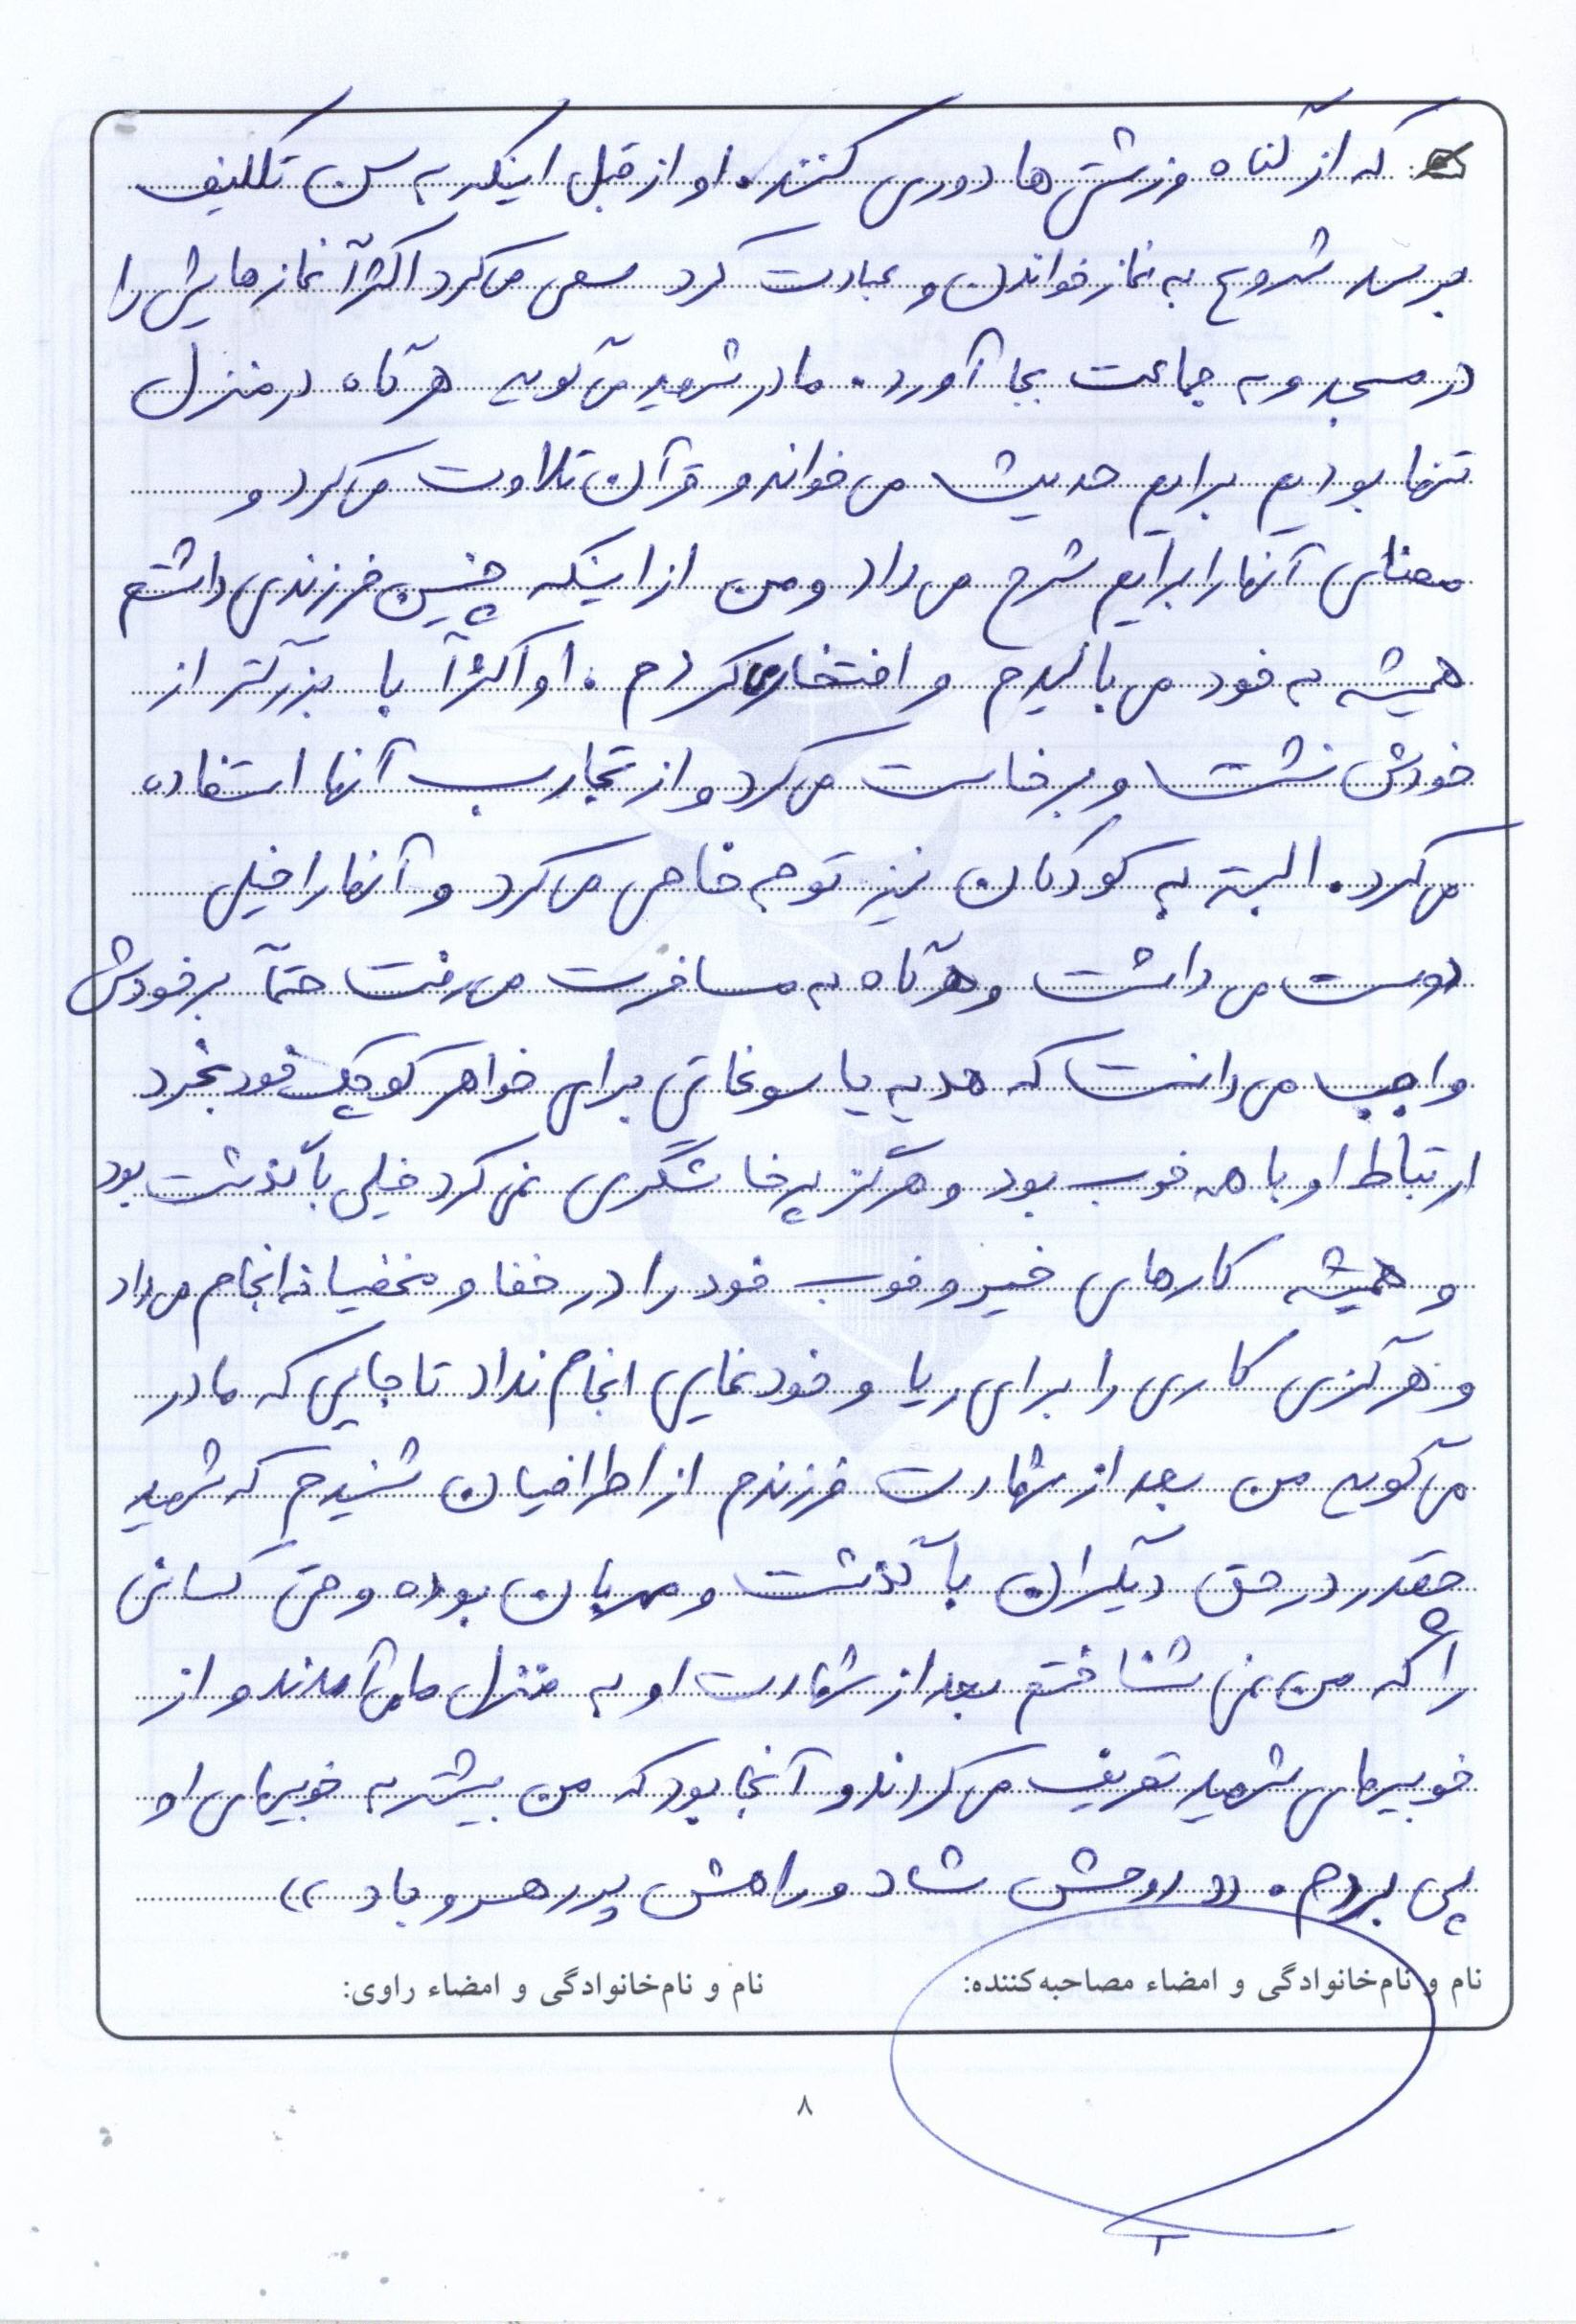 که از گناه و زشتی ها دوری کنند. او از قبل اینکه به سن تکلیف
برسد شروع به نماز خواندن و عبادت کرد سعی می کرد اکثراً نمازهایش را
در مسجد و به جماعت بجا آورد. مادر شهید می گوید هرگاه در منزل
تنها بودیم برایم حدیث می خواند و قرآن تلاوت می کرد و
معنای آنها را برایم شرح می داد و من از اینکه چنین فرزندی داشتم
همیشه به خود می بالیدم و افتخار می کردم. او اکثراً با بزرگتر از
خودش نشست و برخاست می کرد و از تجارب آنها استفاده
می کرد. البته به کودکان نیز توجه خاصی می کرد و آنها را خیلی
دوست می داشت و هرگاه به مسافرت می رفت حتماً بر خودش
واجب می دانست که هدیه یا سوغاتی برای خواهر کوچک خود بخرد
ارتباط او با همه خوب بود و هرگز پرخاشگری نمی کرد خیلی با گذشت بود
و همیشه کارهای خیر و خوب خود را در خفا و مخفیانه انجام می داد
و هرگزی کاری را برای ریا و خودنمایی انجام نداد تا جایی که مادر
می گوید من بعد از شهادت فرزندم از اطرافیان شنیدم که شهید
چقدر در حق دیگران با گذشت و مهربان بوده و حتی کسانی
را که من نمی شناختم بعد از شهادت او به منزل ما می آمدند و از
خوبیهای شهید تعریف می کردند و آنجا بود که من بیشتر به خوبیهای او
پی بردم. «روحش شاد و راهش پر رهرو باد»
نام و نام‌خانوادگی و امضاء مصاحبه‌کننده: نام و نام‌خانوادگی و امضاء راوی:
۸